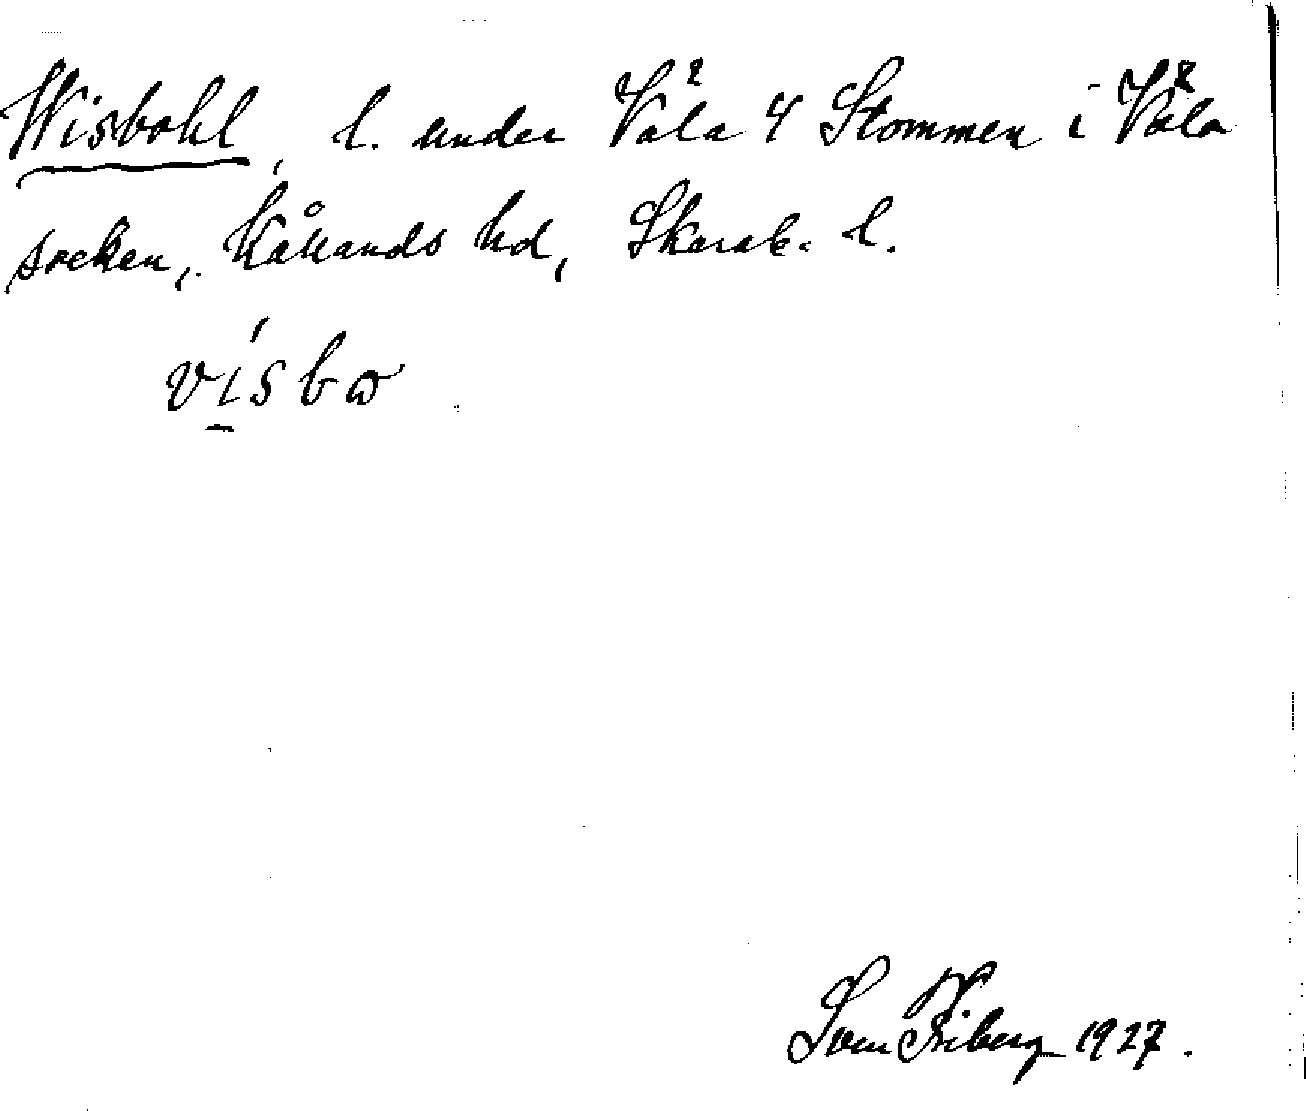 Wisbohl, l. under Våla 4 Stommen i Våla
socken, Kållands hd, Skarab. l.
vísbω
Sven Friberg 1927.